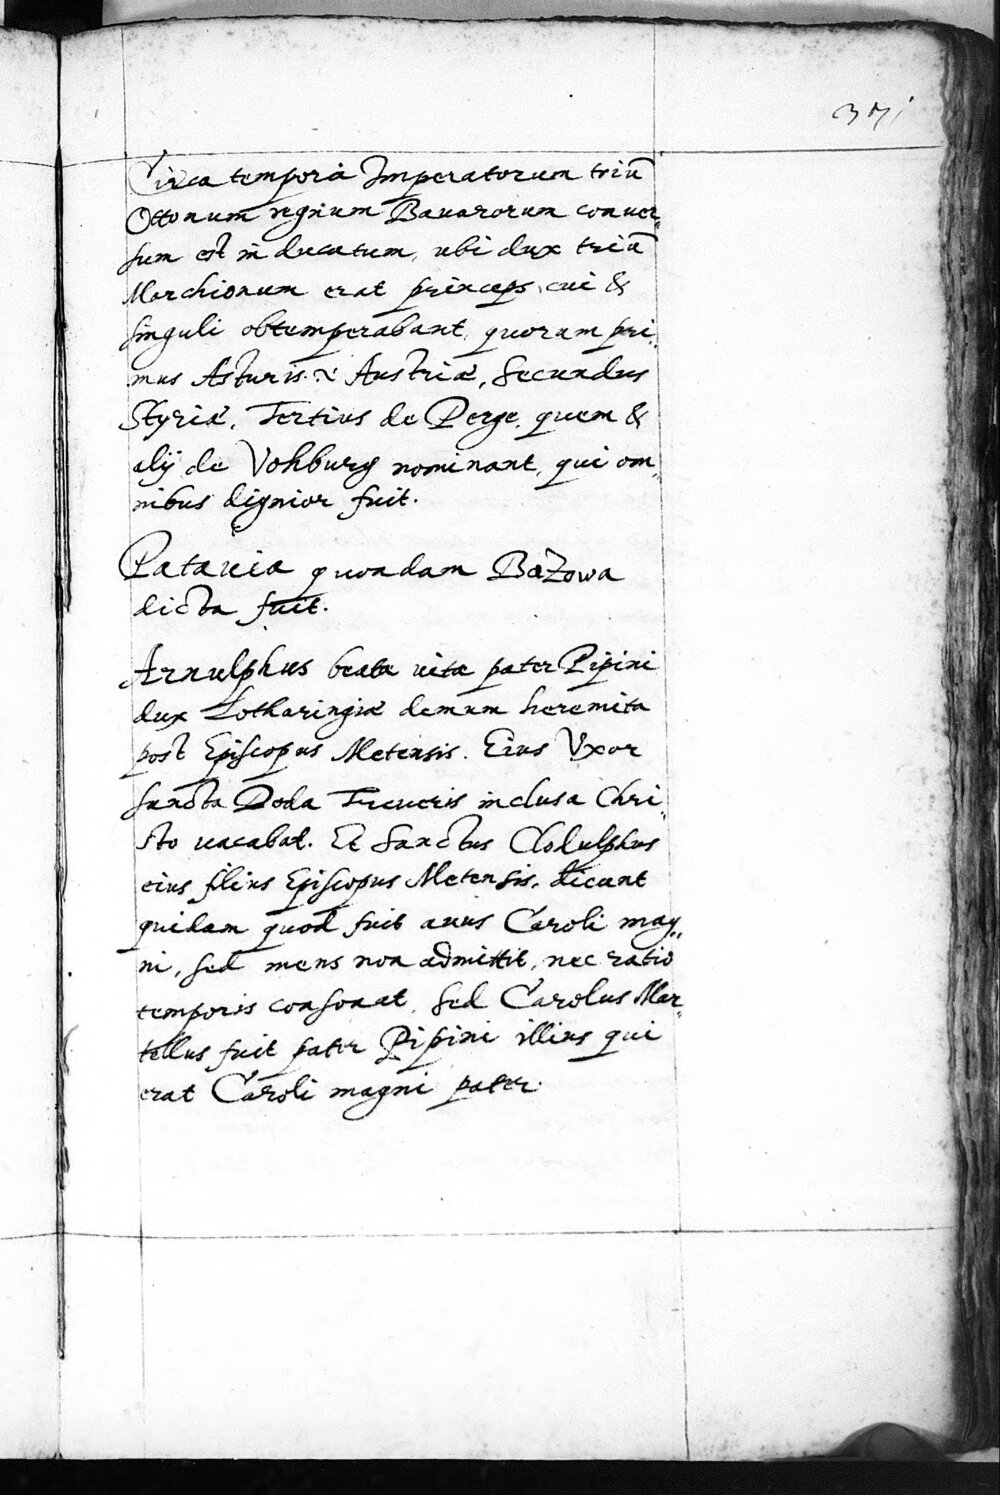 371
Circa tempora Imperatorum triū
Ottonum regnum Bavarorum conuer„
sum est in ducatum, ubi dux triū
Marchionum erat princeps, cui &
singuli obtemperabant, quorum pri„
mus Asturis. Austriæ, Secundus
Styriæ, Tertius de Perge, quem &
alÿ de Vohburg nominant, qui om„
nibus dignior fuit.
Patauia quondam Bazowa
dicta fuit.
Arnulphus beatæ uitæ pater Pipini
dux Lotharingiæ demum heremita
post Episcopus Metensis. Eius Vxor
sancta Doda Treueris inclusa Chri„
sto uacabat. Et Sanctus Clodulphus
eius filius Episcopus Metensis, dicunt
quidam quod fuit auus Caroli mag„
ni, sed mens non admittit, nec ratio
temporis consonat, Sed Carolus Mar„
tellus fuit pater Pipini illius qui
erat Caroli magni pater.